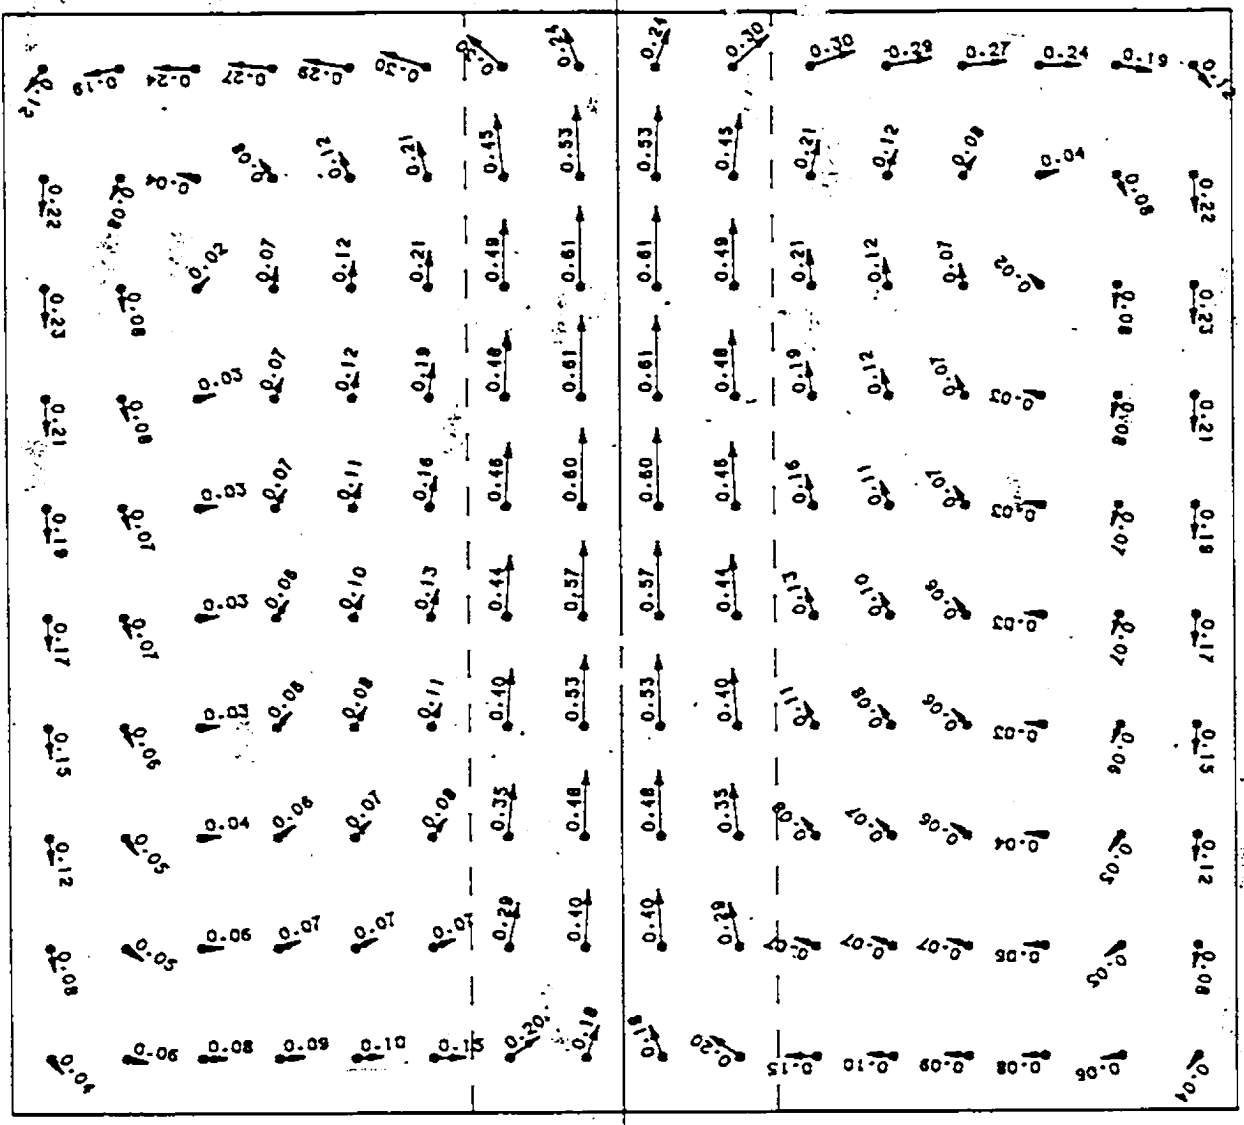 0.12 0.19 0.24 0.27 0.29 0.30 0.30 0.24 0.24 0.30 0.30 0.29 0.27 0.24 0.19 0.12
0.22 0.08 0.04 0.08 0.12 0.21 0.45 0.53 0.53 0.45 0.21 0.12 0.08 0.04 0.08 0.22
0.23 0.08 0.02 0.07 0.12 0.21 0.49 0.61 0.61 0.49 0.21 0.12 0.07 0.02 0.08 0.23
0.21 0.08 0.03 0.07 0.12 0.19 0.48 0.61 0.61 0.48 0.19 0.12 0.07 0.03 0.08 0.21
0.19 0.07 0.03 0.07 0.11 0.16 0.46 0.60 0.60 0.46 0.16 0.11 0.07 0.03 0.07 0.19
0.17 0.07 0.03 0.06 0.10 0.13 0.44 0.57 0.57 0.44 0.13 0.10 0.06 0.03 0.07 0.17
0.15 0.06 0.03 0.06 0.08 0.11 0.40 0.53 0.53 0.40 0.11 0.08 0.06 0.03 0.06 0.15
0.12 0.05 0.04 0.06 0.07 0.09 0.35 0.48 0.48 0.35 0.09 0.07 0.06 0.04 0.05 0.12
0.08 0.05 0.06 0.07 0.07 0.07 0.29 0.40 0.40 0.29 0.07 0.07 0.07 0.06 0.05 0.08
0.04 0.06 0.08 0.09 0.10 0.15 0.20 0.18 0.18 0.20 0.15 0.10 0.09 0.08 0.06 0.04